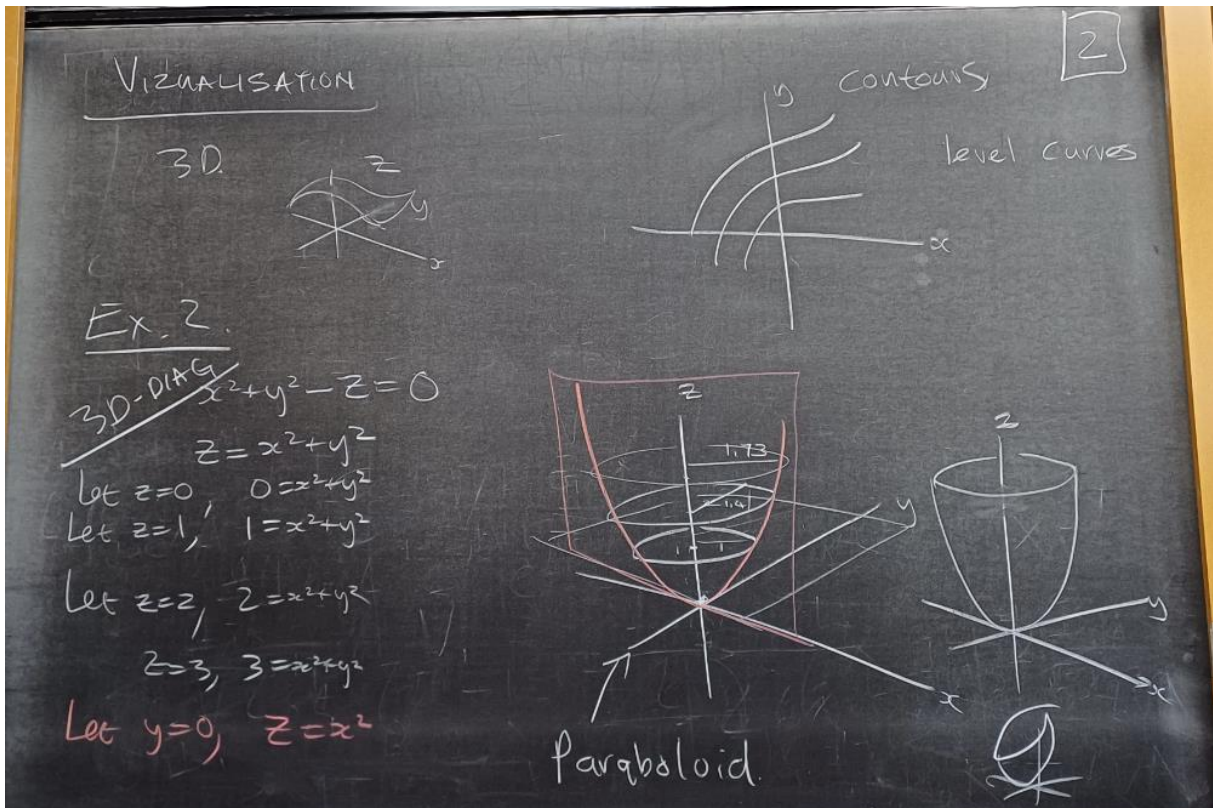 2
VIZUALISATION
contours,
level curves
3D.
z
y
x
y
x
Ex. 2.
3D-DIAG
x²+y²-z=0
z=x²+y²
Let z=0, 0=x²+y²
Let z=1, 1=x²+y²
Let z=2, 2=x²+y²
z=3, 3=x²+y²
Let y=0, z=x²
z
1.73
1.4
1
y
x
Paraboloid.
z
y
x